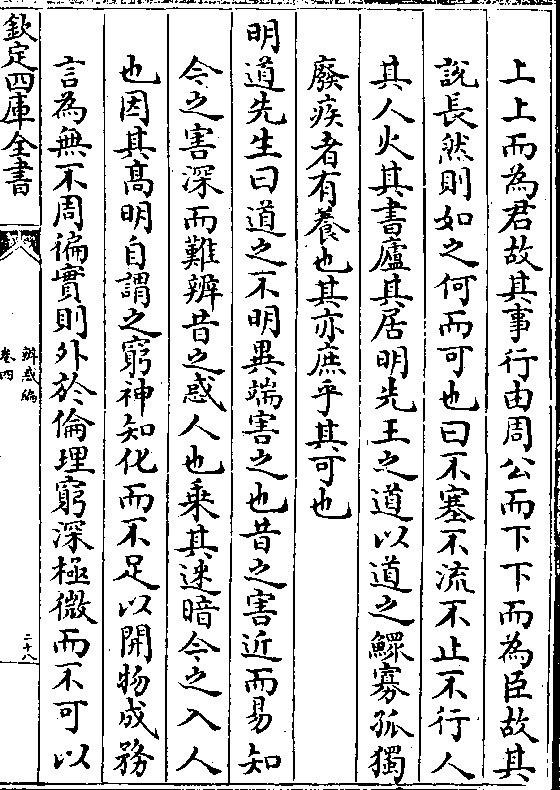 上上而為君故其事行由周公而下下而為臣故其
說長然則如之何而可也曰不塞不流不止不行人
其人火其書廬其居明先王之道以道之鰥寡孤獨
廢疾者有養也其亦庶乎其可也
明道先生曰道之不明異端害之也昔之害近而易知
今之害深而難辨昔之惑人也乗其迷暗今之入人
也因其髙明自謂之窮神知化而不足以開物成務
言為無不周徧實則外於倫理窮深極微而不可以
欽定四庫全書
辨惑編
卷四
二十八